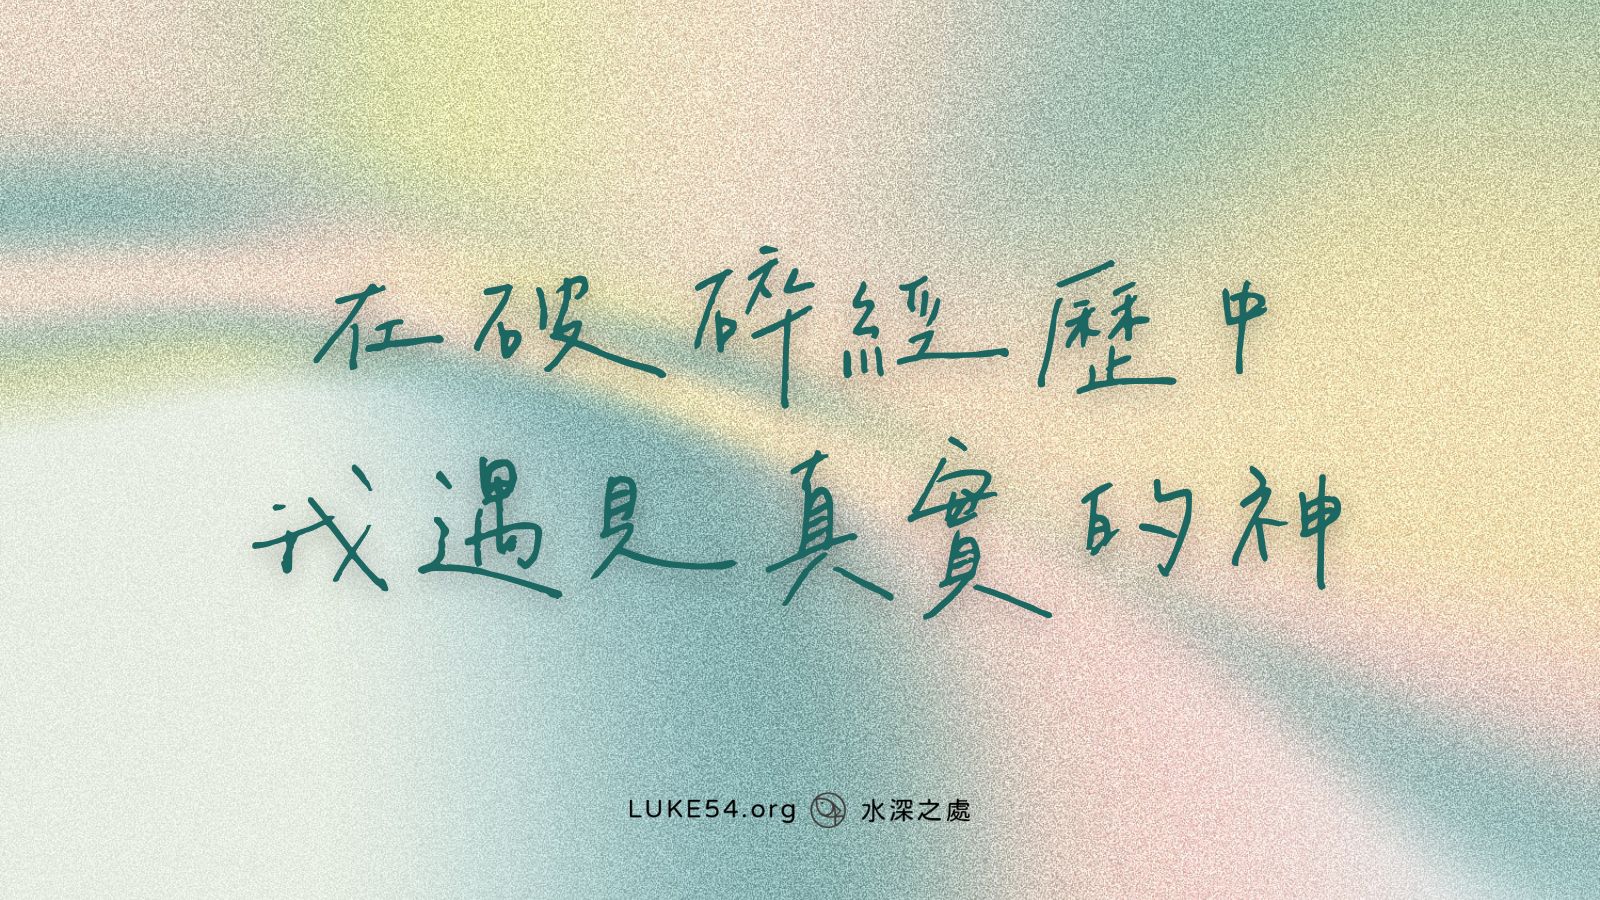 在破碎經歷中
我遇見真實的神
LUKE54.org 水深之處